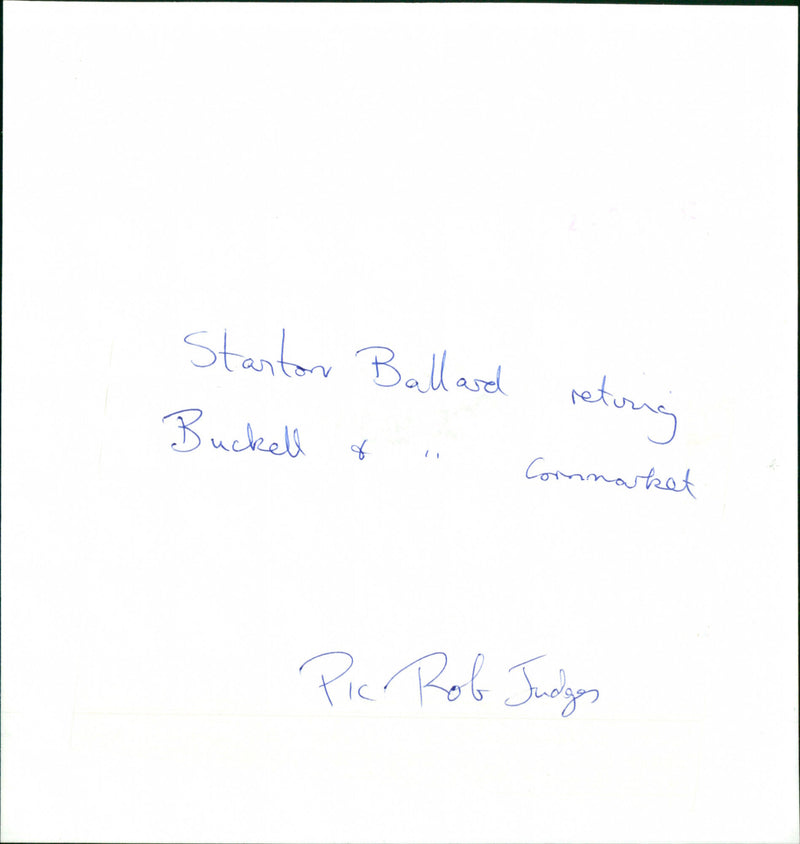 Stanton Ballard retiring
Buckell & " Cornmarket
Pic Rob Judges